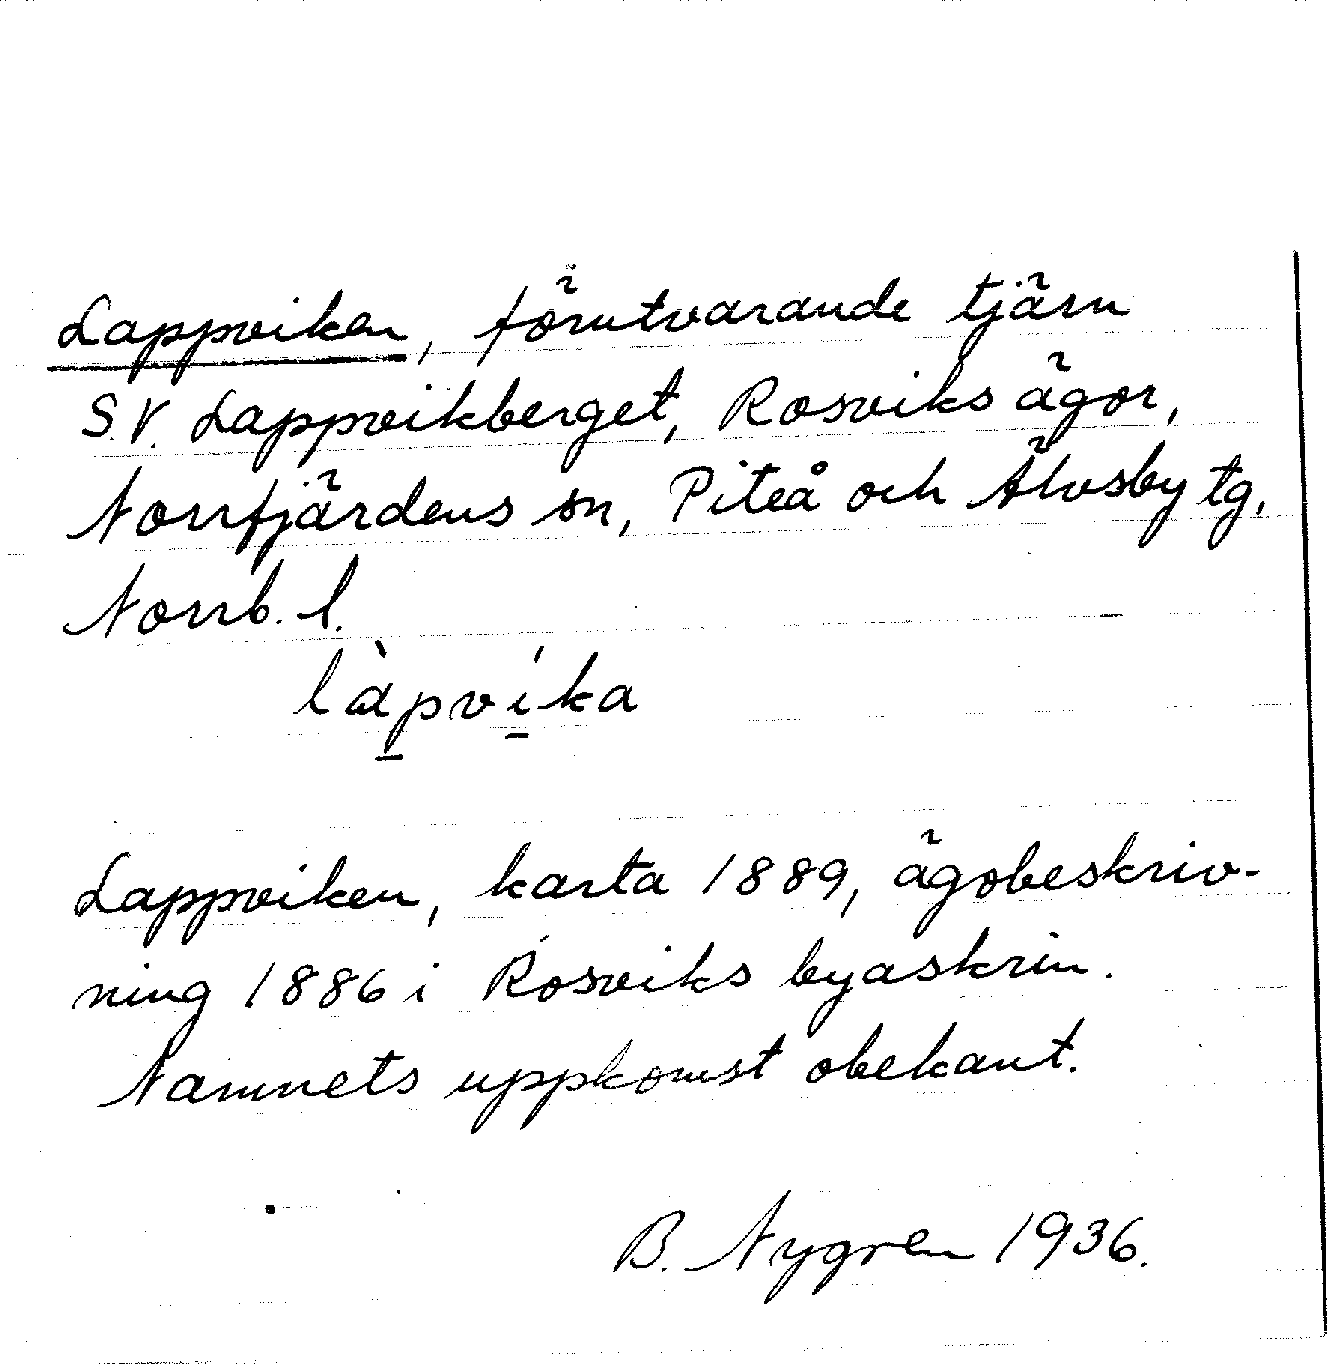 Lappviken, förutvarande tjärn
S.V. Lappvikberget, Rosviks ägor,
Norrfjärdens sn, Piteå och Älvsby tg,
Norrb. l.
làpvíka
Lappviken, karta 1889, ägobeskriv-
ning 1886 i Rosviks byaskrin.
Namnets uppkomst obekant.
B. Nygren 1936.